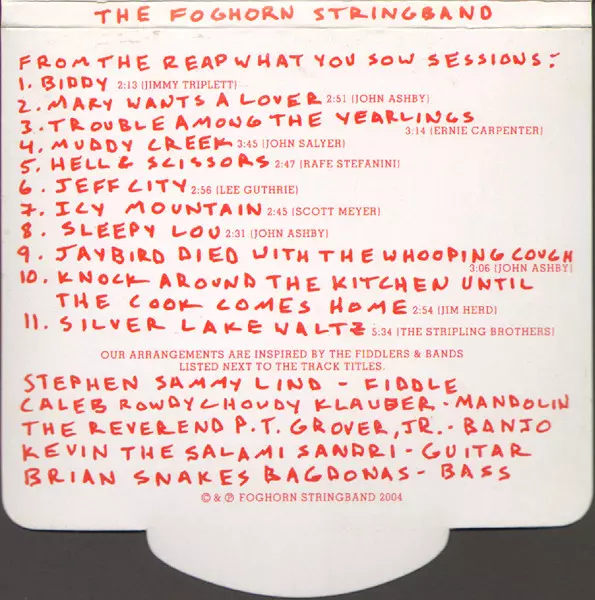 THE FOGHORN STRINGBAND
FROM THE REAP WHAT YOU SOW SESSIONS:
1. BIDDY 2:13 (JIMMY TRIPLETT)
2. MARY WANTS A LOVER 2:51 (JOHN ASHBY)
3. TROUBLE AMONG THE YEARLINGS
3:14 (ERNIE CARPENTER)
4. MUDDY CREEK 3:45 (JOHN SALYER)
5. HELL & SCISSORS 2:47 (RAFE STEFANINI)
6. JEFF CITY 2:56 (LEE GUTHRIE)
7. ICY MOUNTAIN 2:45 (SCOTT MEYER)
8. SLEEPY LOU 2:31 (JOHN ASHBY)
9. JAYBIRD DIED WITH THE WHOOPING COUGH
3:06 (JOHN ASHBY)
10. KNOCK AROUND THE KITCHEN UNTIL
THE COOK COMES HOME 2:54 (JIM HERD)
11. SILVER LAKE WALTZ 5:34 (THE STRIPLING BROTHERS)
OUR ARRANGEMENTS ARE INSPIRED BY THE FIDDLERS & BANDS
LISTED NEXT TO THE TRACK TITLES.
STEPHEN SAMMY LIND - FIDDLE
CALEB ROWDYCHOUDY KLAUBER - MANDOLIN
THE REVEREND P.T. GROVER, JR. - BANJO
KEVIN THE SALAMI SANDRI - GUITAR
BRIAN SNAKES BAGDONAS - BASS
© & ℗ FOGHORN STRINGBAND 2004